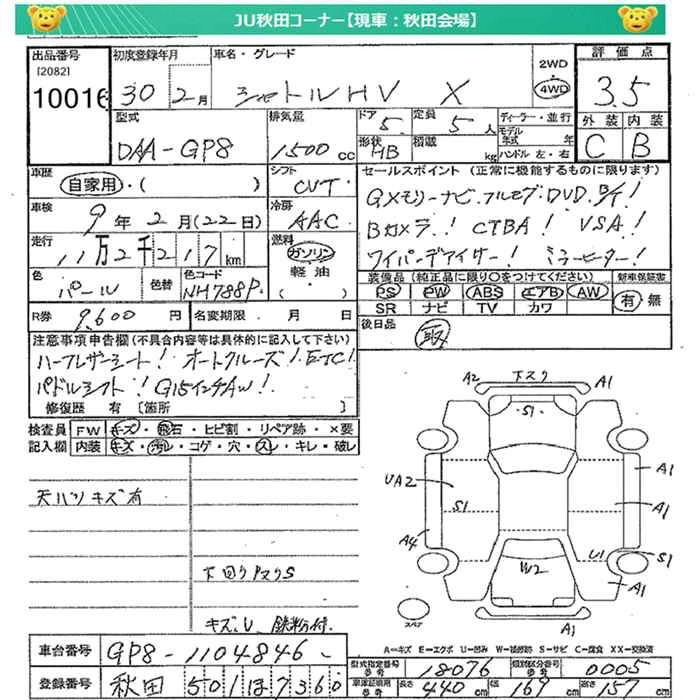 JU秋田コーナー【現車：秋田会場】
出品番号 [2082] 10016
初度登録年月 30 2月
車名・グレード シャトルHV X
2WD 4WD
評価点 3.5
外装 C 内装 B
型式 DAA-GP8
排気量 1500 cc
ドア 5 定員 5 人
形状 HB 積載 kg
ディーラー・並行
モデル年式 年
ハンドル 左・右
車歴 自家用・( )
シフト CVT
車検 9年 2月(22日)
冷房 AAC
走行 11万2千217km
燃料 ガソリン 軽油 ( )
色 パール 色替 色コード NH788P.
R券 9,600 円 名変期限 . 月 日
セールスポイント (正常に機能するものに限ります)
Gメモリーナビ.フルセグ.DVD.B/T!
Bカメラ! CTBA! VSA!
ワイパーデアイサー! ミラーヒーター!
装備品 (純正品に限り○をつけてください)
PS PW ABS エアB AW
SR ナビ TV カワ
新車保証書 有・無
後日品 取
注意事項申告欄 (不具合内容等は具体的に記入して下さい)
ハーフレザーシート! オートクルーズ! ETC!
パドルシフト! G15インチAW!
修復歴 有 [箇所 ]
検査員記入欄
FW キズ・飛石・ヒビ割・リペア跡・×要
内装 キズ・汚レ・コゲ・穴・スレ・キレ・破レ
天バリキズ有
下回りアスリS
キズ.U 鉄粉付.
A2 下スリ A1
S1
UA2 S1 A1
A1
A4 U1 S1
W2 A1
A1
スペア
A=キズ E=エクボ U=凹み W=補修跡 S=サビ C=腐食 XX=交換済
車台番号 GP8-1104846
登録番号 秋田 501ほ7360
型式指定番号 参考 18076 類別区分番号 参考 0005
車庫証明用 参考 長さ 440 cm 幅 169 cm 高さ 157 cm